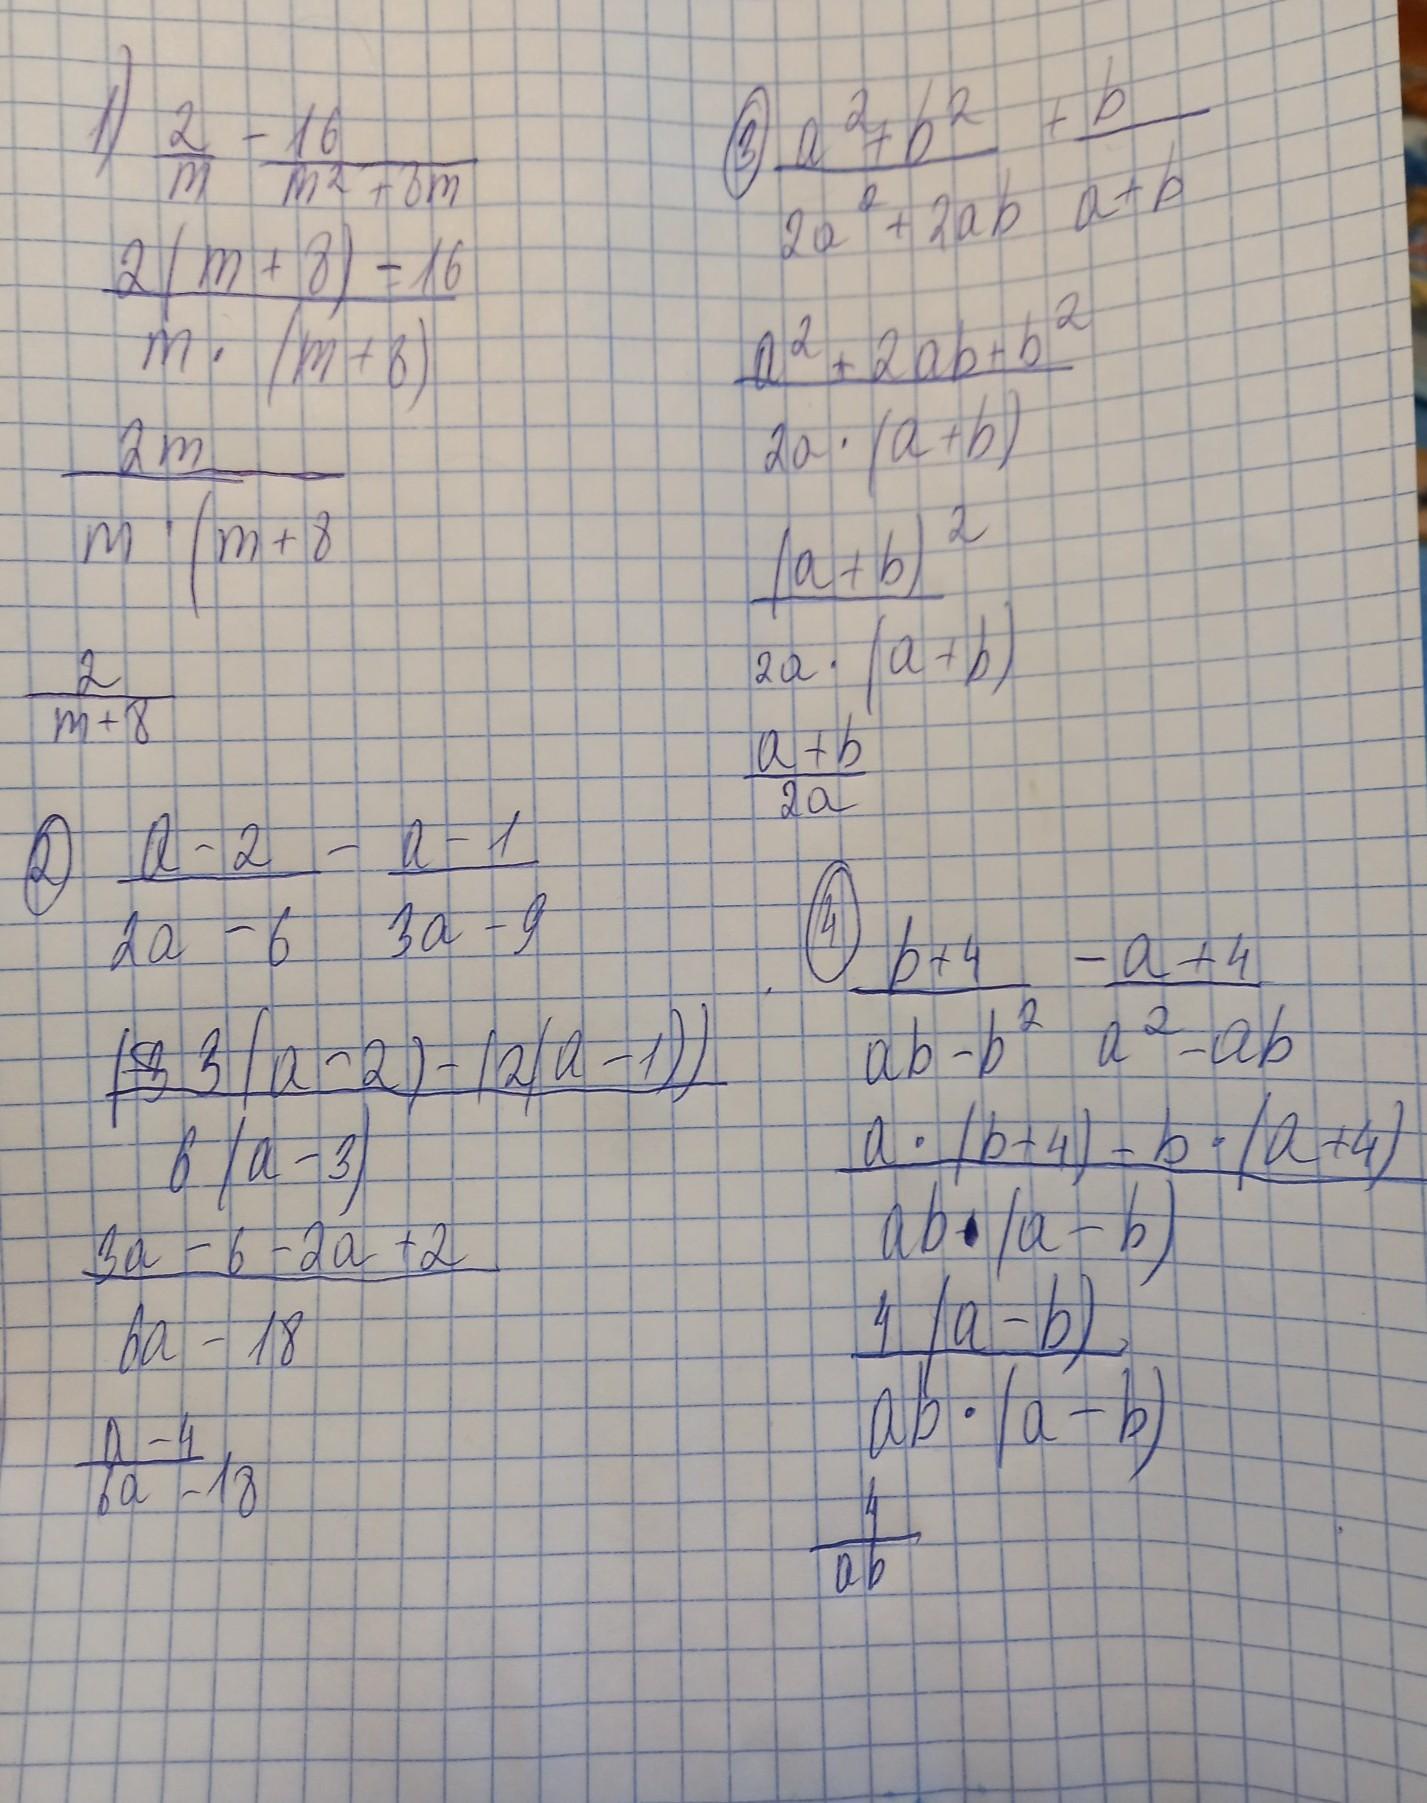 1) 2/m - 16/(m² + 8m)
2(m + 8) - 16
m · (m + 8)
2m
m · (m + 8
2
m + 8
② a - 2/2a - 6 - a - 1/3a - 9
(3(a - 2) - (2(a - 1))
6(a - 3)
3a - 6 - 2a + 2
6a - 18
a - 4
6a - 18
③ a² + b²/2a² + 2ab + b/a + b
a² + 2ab + b²
2a · (a + b)
(a + b)²
2a · (a + b)
a + b
2a
④ b + 4/ab - b² - a + 4/a² - ab
a · (b + 4) - b · (a + 4)
ab · (a - b)
4(a - b)
ab · (a - b)
4
ab